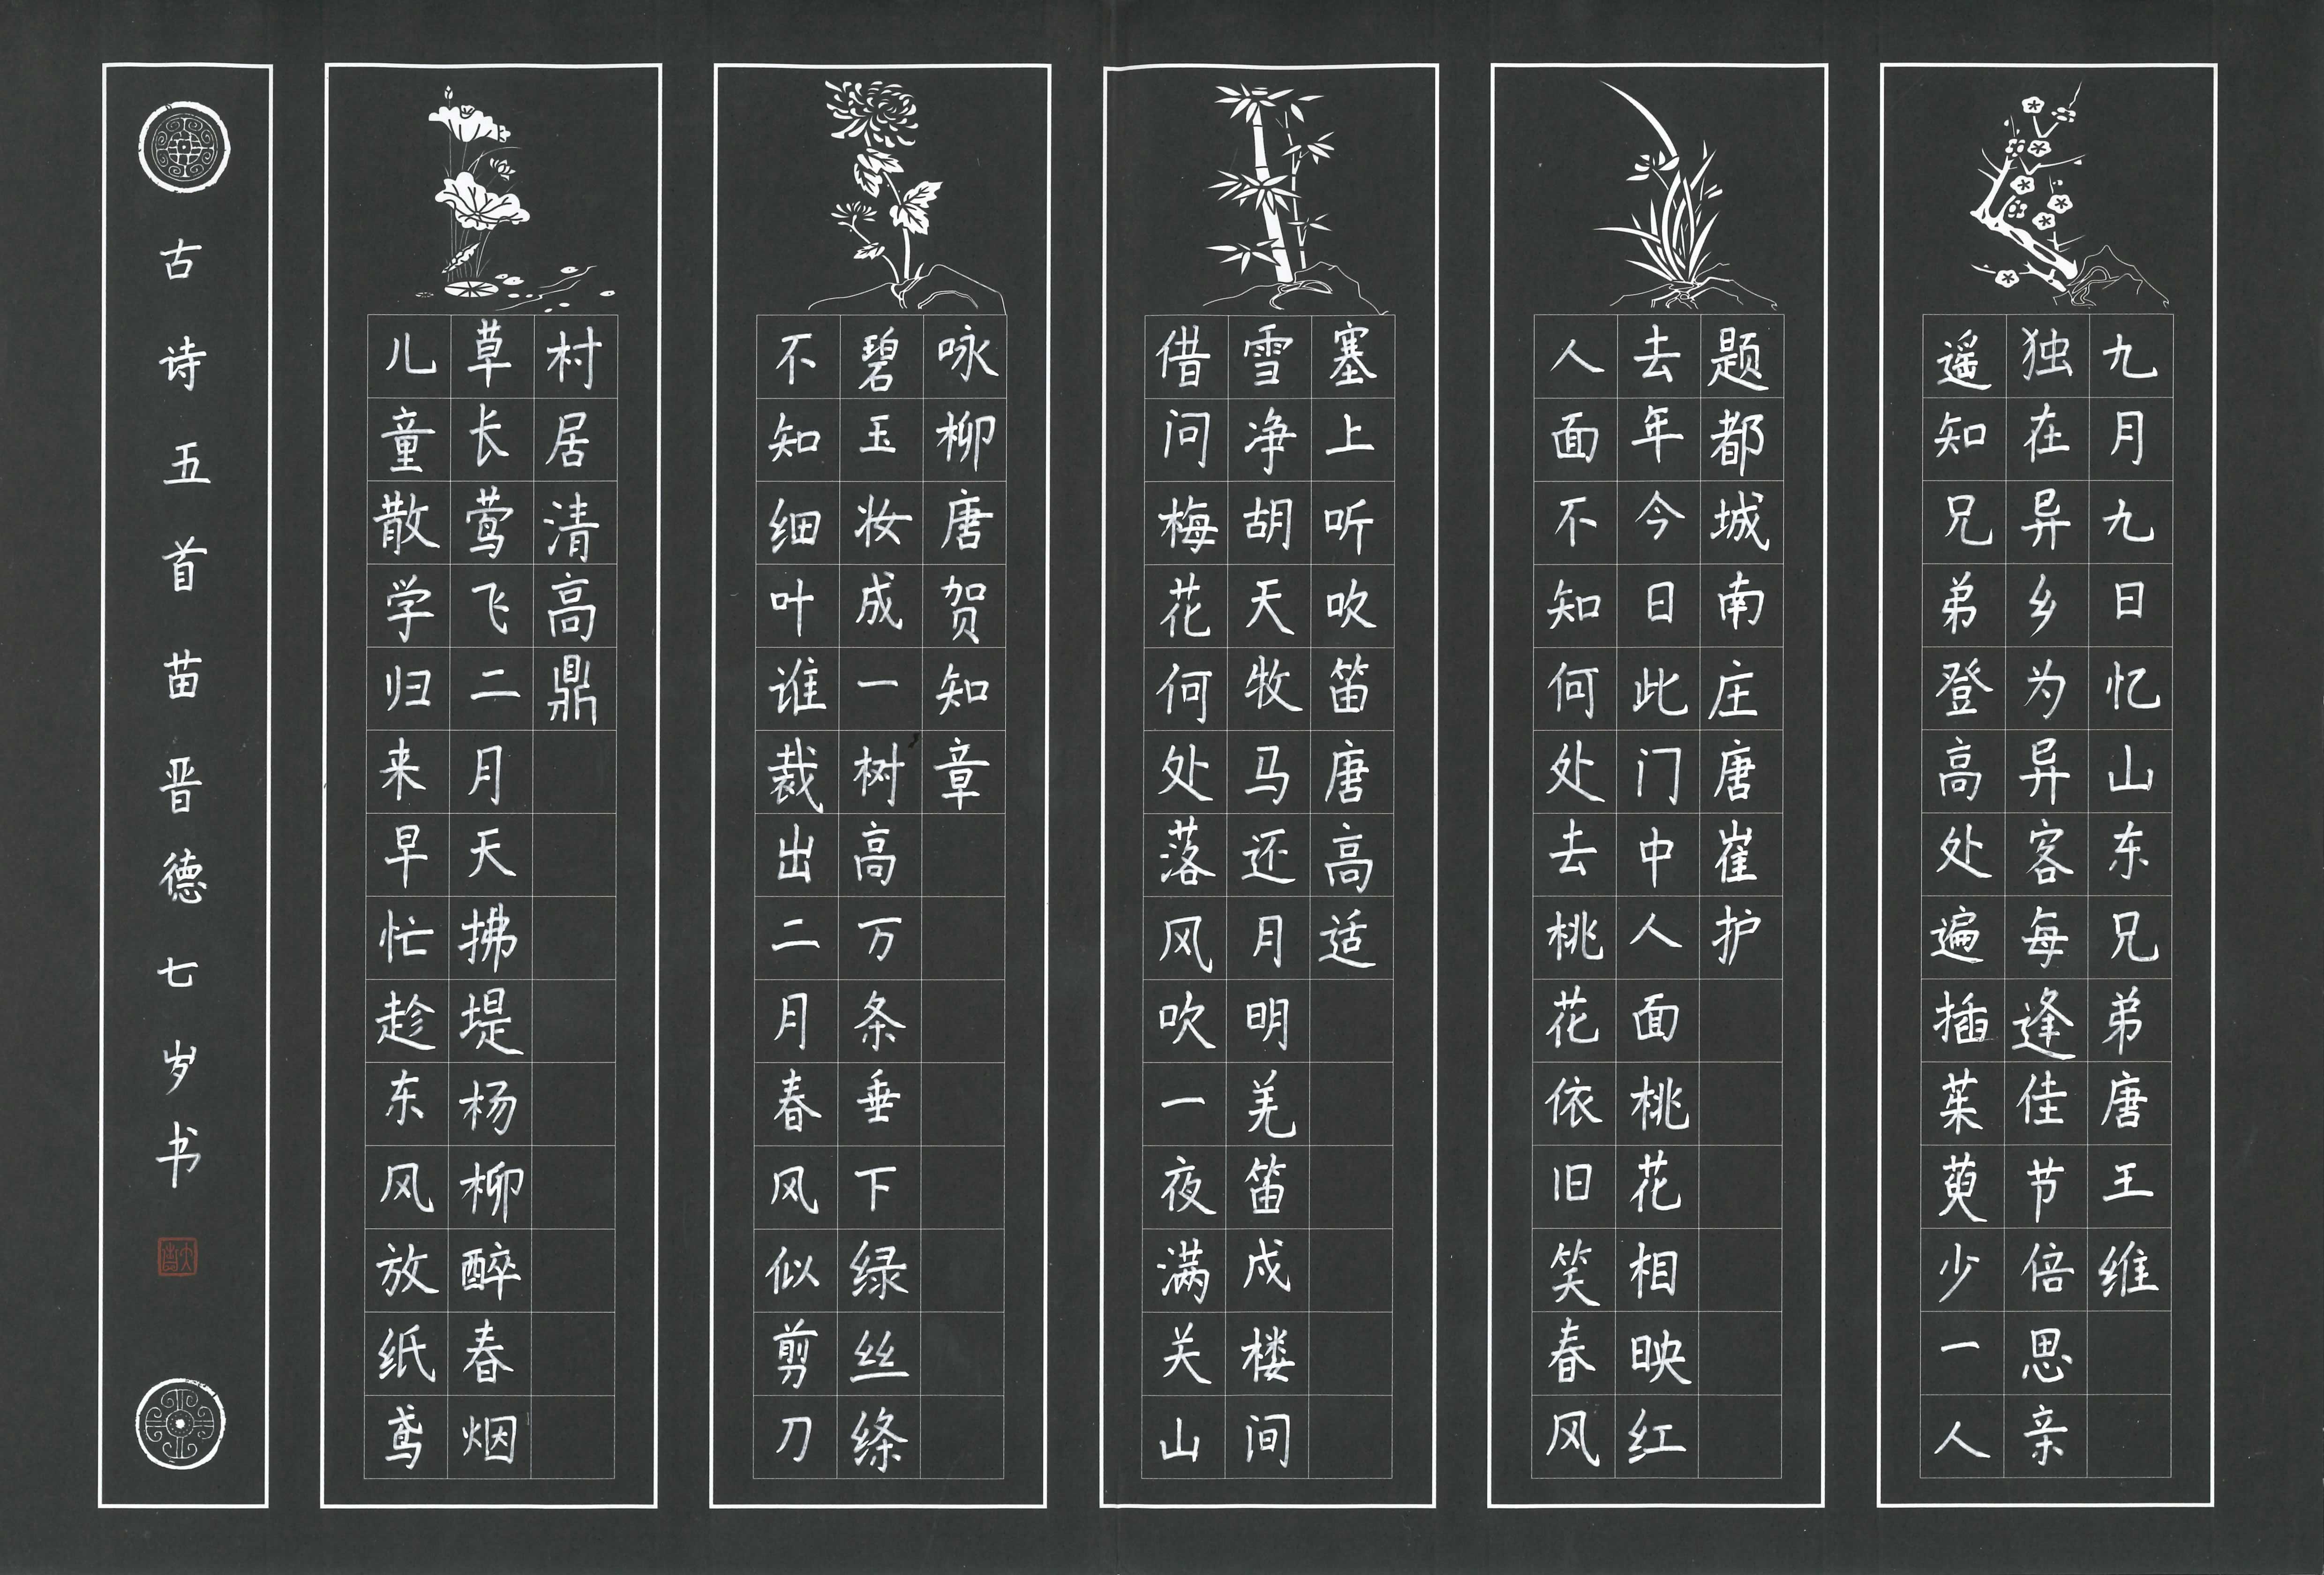 九月九日忆山东兄弟唐王维
独在异乡为异客每逢佳节倍思亲
遥知兄弟登高处遍插茱萸少一人
题都城南庄唐崔护
去年今日此门中人面桃花相映红
人面不知何处去桃花依旧笑春风
塞上听吹笛唐高适
雪净胡天牧马还月明羌笛戍楼间
借问梅花何处落风吹一夜满关山
咏柳唐贺知章
碧玉妆成一树高万条垂下绿丝绦
不知细叶谁裁出二月春风似剪刀
村居清高鼎
草长莺飞二月天拂堤杨柳醉春烟
儿童散学归来早忙趁东风放纸鸢
古诗五首苗晋德七岁书